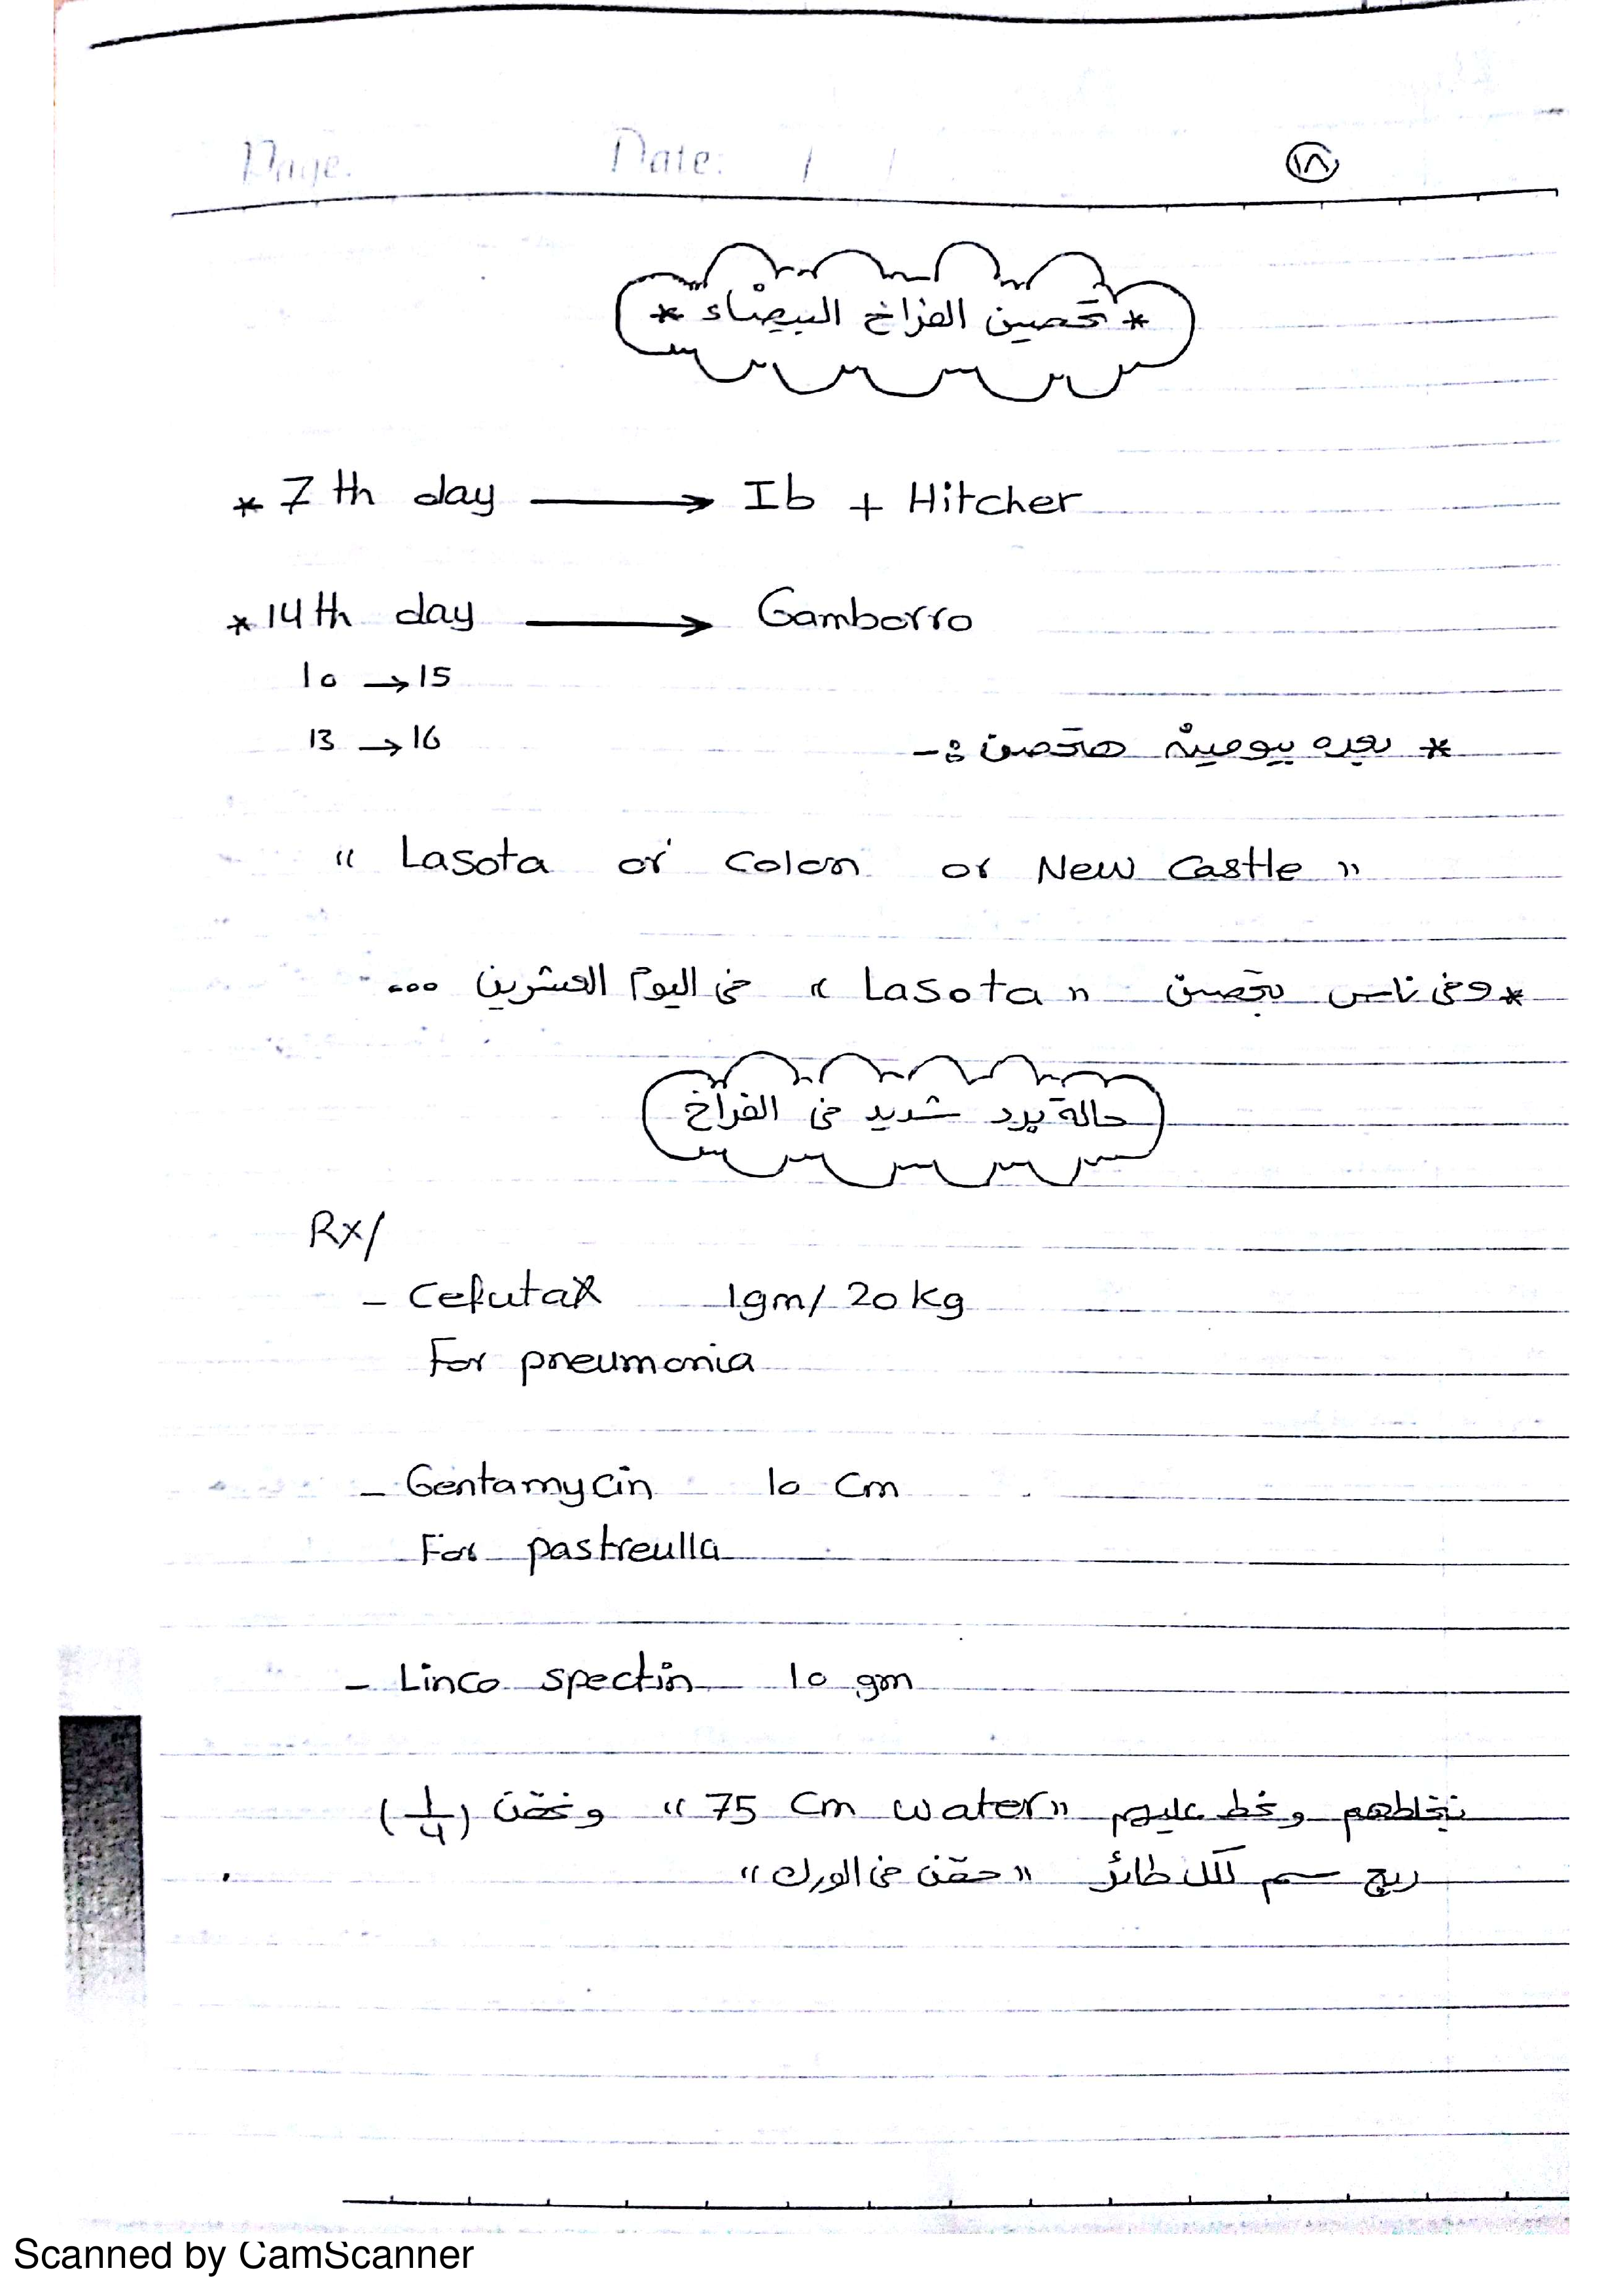 Page. Date: / / ١٨
* تحصين الفراخ البيضاء *
* 7th day → Ib + Hitcher
* 14th day → Gamborro
10 → 15
13 → 16
* بعده بيومين هتحصن :-
" Lasota or Colon or New Castle "
* وفى ناس بتحصن " Lasota " فى اليوم العشرين ...
حالة برد شديد فى الفراخ
Rx/
- Cefutax 1gm/ 20 kg
For pneumonia
- Gentamycin 10 Cm
For pastreulla
- Linco spectin 10 gm
نخلطهم ونحط عليهم "75 Cm water" ونحقن (1/4)
ربع سم لكل طائر "حقن فى الورك"
Scanned by CamScanner